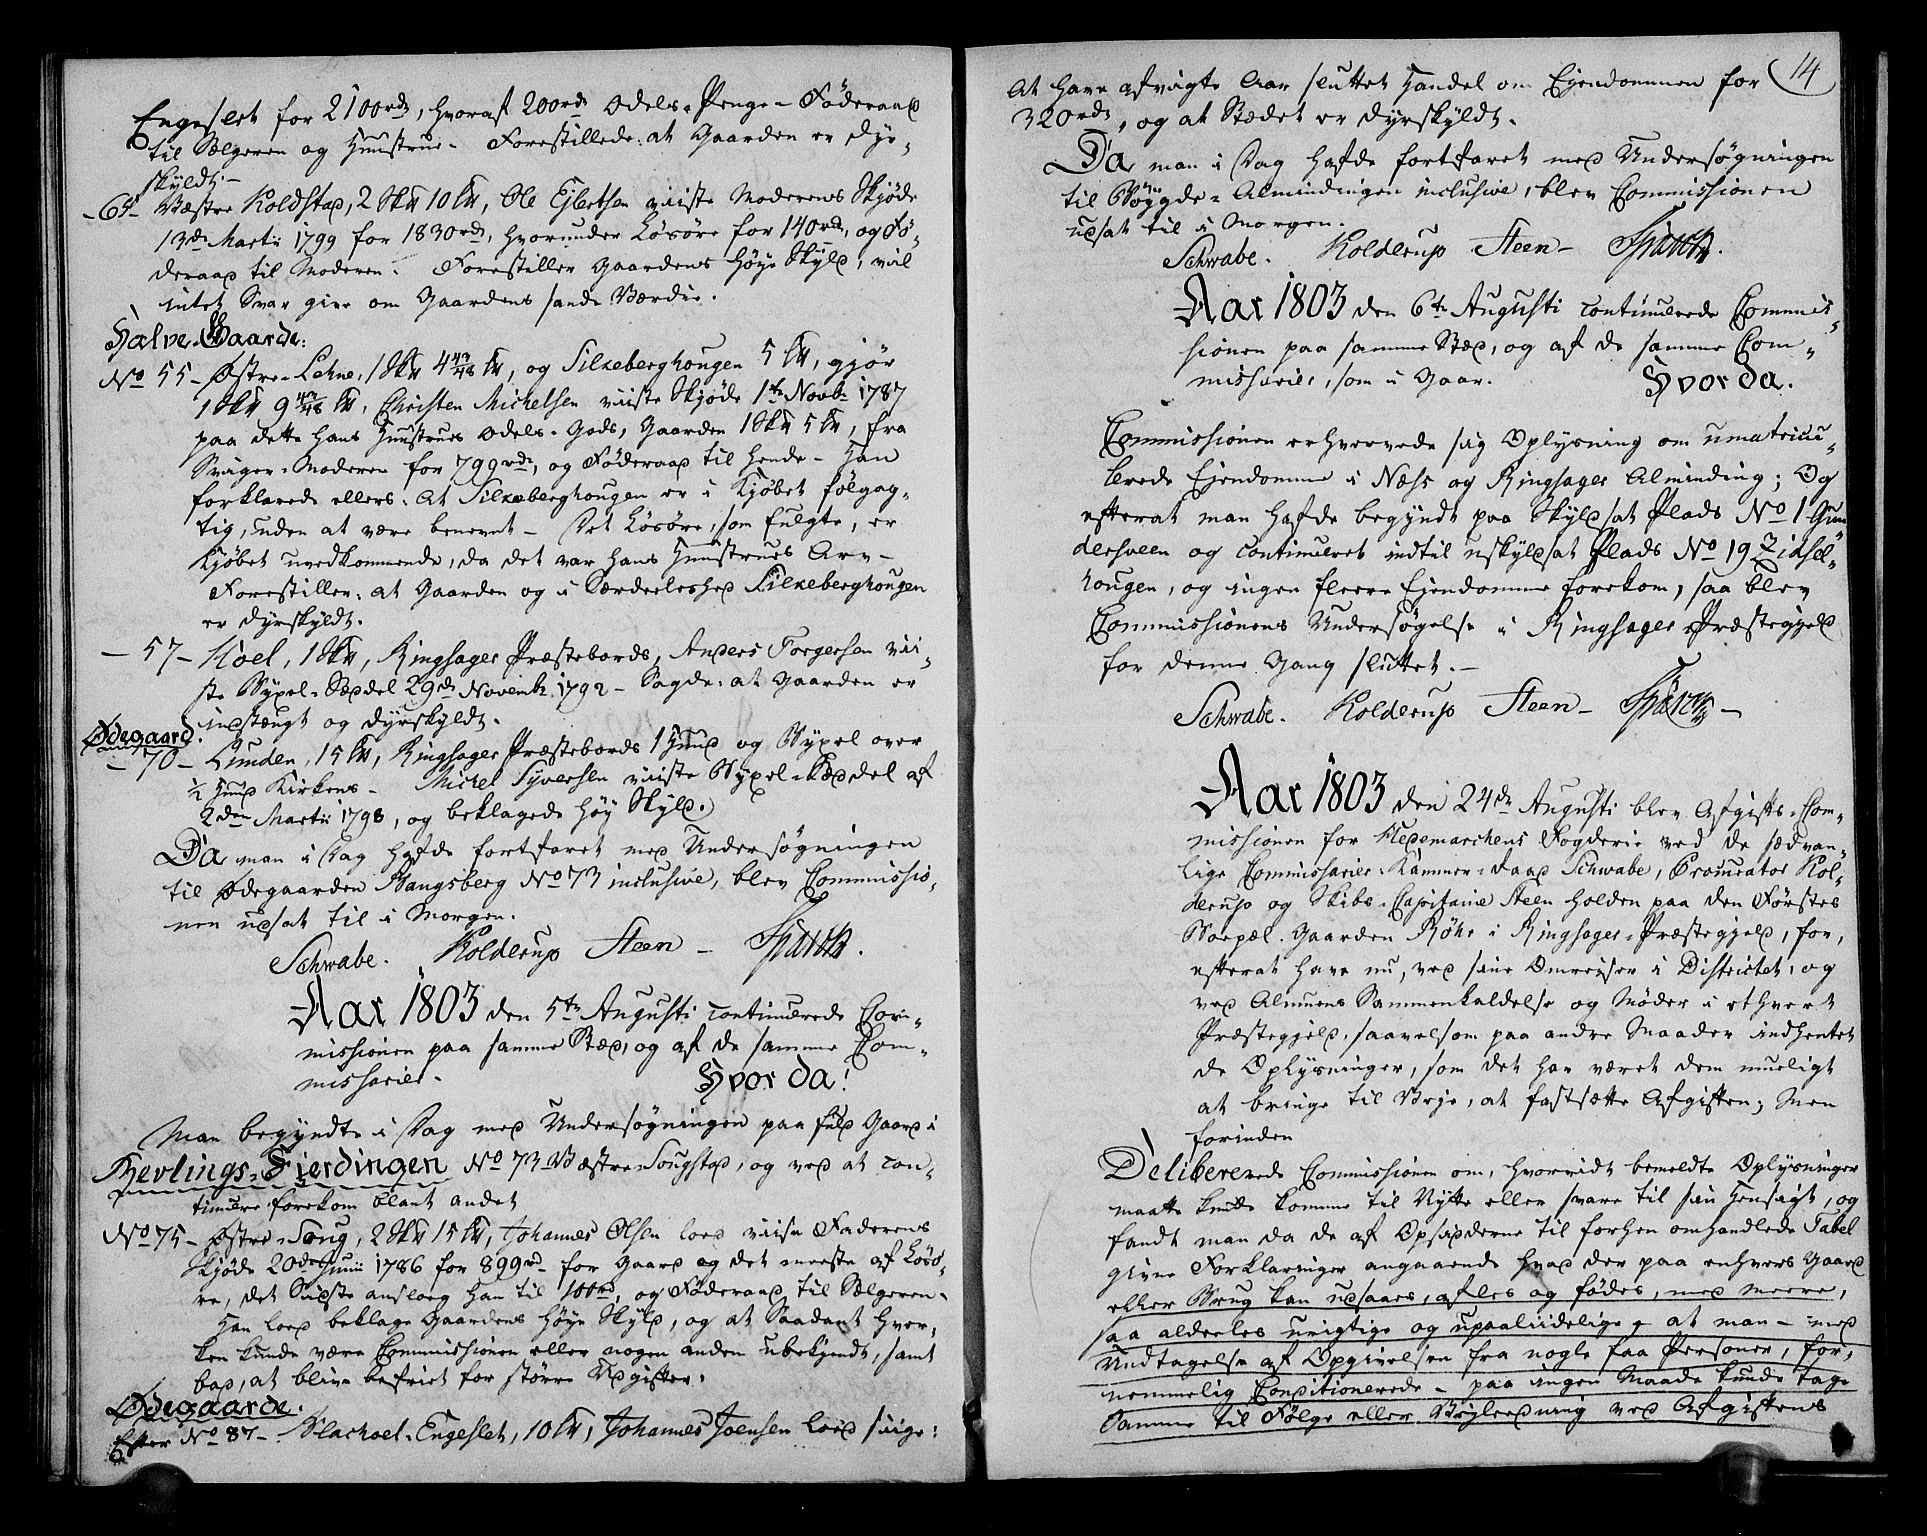 Engeslet for 2100rd, hvoraf 200rd Odels-Penge - Föderaad
til Sælgeren og Hustrue - Forestillede: at Gaarden er dyr-
skyldt. -
- 65 - Væstre Koldstad, 2 Skt 10 lt, Ole Ejlertsen viiste Moderens Skjöde
13de Martii 1799 for 1830rd, hvorunder Lösöre for 140rd, og Fö-
deraad til Moderen. Forestiller Gaardens höye Skyld, vil
intet Svar give om Gaardens sande Værdie.
Halve Gaarde:
No 55 - Østre-Lehne, 1 Skt 4 47/48 lt, og Silkeberghougen 5 lt, gjör
1 Skt 9 47/48 lt, Christen Michelsen viiste Skjöde 1te Novb. 1787
paa dette hans Hustrues Odels-Gods, Gaarden 1 Skt 5 lt, fra
Sviger-Moderen for 799rd, og Föderaad til hende - Han
forklarede ellers: At Silkeberghougen er i Kjöbet fölgag-
tig, uden at være benevnt - Det Lösöre, som fulgte, er
Kjöbet uvedkommende, da det var hans Hustrues Arv -
Forestiller: at Gaarden og i Særdeleshed Silkeberghougen
er dyrskyldt.
- 57 - Hoel, 1 Skt, Ringsager Præstebords, Anders Torgersen vii-
ste Byxel-Sæddel 29de Novembr. 1792 - Sagde: at Gaarden er
indstængt og dyrskyldt.
Ødegaard.
- 70 - Lunden, 15 lt, Ringsager Præstebords 1 Hund og Byxel over
1/2 Hund Kirkens - Michel Syversen viiste Byxel-Sæddel af
2den Martii 1798, og beklagede höy Skyld.
Da man i Dag hafde fortfaret med Undersögningen
til Ødegaarden Stangsberg No 73 inclusive, blev Commissio-
nen udsat til i Morgen.
Schwabe. Kolderup Steen - Sparch.
Aar 1803 den 5te Augusti continuerede Com-
missionen paa samme Stæd, og af de samme Com-
missarier. Hvor da!
Man begyndte i Dag med Undersögningen paa fuld Gaard i
Hevlings-Fierdingen No 73 Væstre-Sougstad, og ved at con-
tinuere forekom blant andet
No 75 - Østre-Soug, 2 Skt 15 lt, Johannes Olsen lod viise Faderens
Skjöde 20de Junii 1786 for 899rd - for Gaard og det meeste af Lösö-
re, det Sidste ansloeg han til 100rd, og Föderaad til Sælgeren -
Han lod beklage Gaardens höye Skyld, og at Saadant hver-
ken kunde være Commissionen eller nogen anden ubekjendt, samt
bad, at blive befriet for större Udgifter.
Ødegaarde.
Efter No 87 - Engeslet, 10 lt, Johannes Joensen lod sige:
14
At have afvigte Aar sluttet Handel om Ejendommen for
320rd, og at Stædet er dyrskyldt.
Da man i Dag hafde fortfaret med Undersögningen
til Böygde-Almindingen inclusive, blev Commissionen
udsat til i Morgen.
Schwabe. Kolderup Steen - Sparch.
Aar 1803 den 6te Augusti continuerede Commis-
sionen paa samme Stæd, og af de samme Com-
missarier, som i Gaar. Hvor da.
Commissionen erhvervede sig Oplysning om umatricu-
lerede Ejendomme i Næss og Ringsager Alminding; Og
efterat man hafde begyndt paa Skyldsat Plads No 1 Gun-
dersveen og continueret indtil uskyldsat Plads No 19
hougen, og ingen fleere Ejendomme forekom, saa blev
Commissionens Undersögelse i Ringsager Præstegjeld
for denne Gang sluttet. -
Schwabe. Kolderup Steen - Sparch -
Aar 1803 den 24de Augusti blev Afgifts-Com-
missionen for Hedemarchens Fogderie ved de sædvan-
lige Commissarier: Kammer-Raad Schwabe, Procurator Kol-
derup og Skibs-Capitaine Steen holden paa den Förstes
Boepæl Gaarden Röhr i Ringsager-Præstegjeld, for,
efterat have nu, ved sine Omreiser i Districtet, og
ved Almuens Sammenkaldelse og Möder i ethvert
Præstegjeld, saavelsom paa andre Maader indhentet
de Oplysninger, som det har været dem mueligt
at bringe til Veje, at fastsætte Afgiften; Men
forinden
Delibererede Commissionen om, hvorvidt bemeldte Oplysninger
maatte kunde komme til Nytte eller svare til sin Hensigt, og
fandt man da de af Opsidderne til forhen omhandlede Tabel
givne Forklaringer angaaende hvad der paa enhvers Gaard
eller Brug kan udsaaes, afles og födes, med meere,
saa aldeeles urigtige og upaaliidelige, at man - med
Undtagelse af Opgivelsen fra nogle faa Personer, for-
nemmelig Conditionerede - paa ingen Maade kunde tage
Samme til Fölge eller Veyledning ved Afgiftens